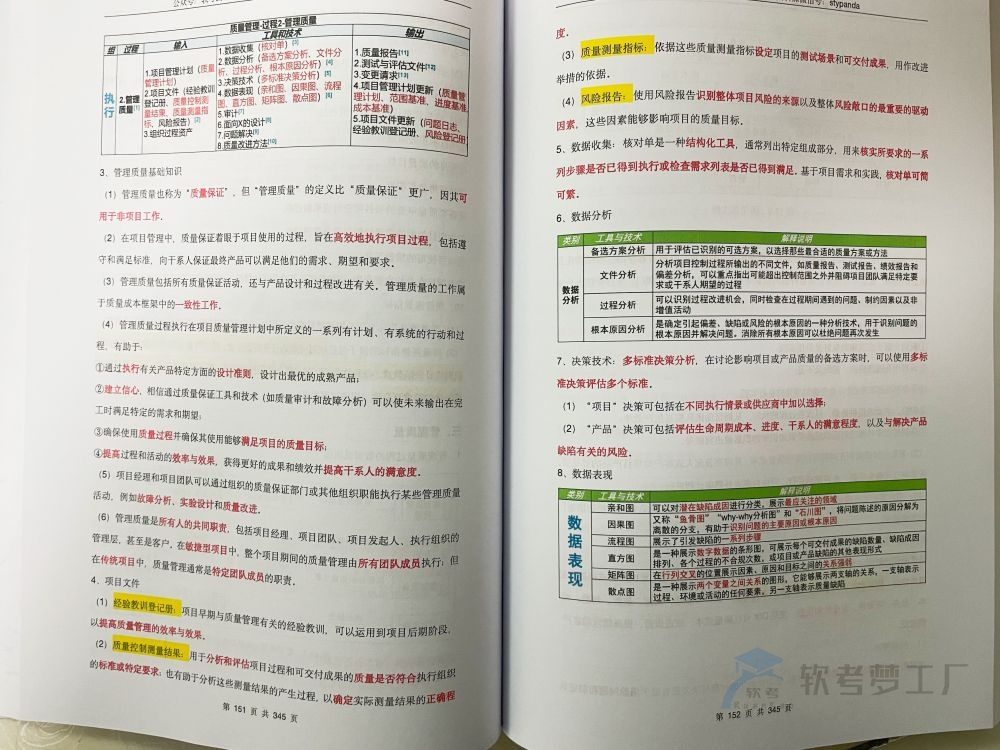 质量管理-过程2-管理质量
组 过程 输入 工具和技术 输出
执行
2.管理质量[1]
1.项目管理计划（质量
管理计划）
2.项目文件（经验教训
登记册、质量控制测
量结果、质量测量指
标、风险报告）[2]
3.组织过程资产
1.数据收集（核对单）[3]
2.数据分析（备选方案分析、文件分
析、过程分析、根本原因分析）[4]
3.决策技术（多标准决策分析）[5]
4.数据表现（亲和图、因果图、流程
图、直方图、矩阵图、散点图）[6]
5.审计[7]
6.面向X的设计[8]
7.问题解决[9]
8.质量改进方法[10]
1.质量报告[11]
2.测试与评估文件[12]
3.变更请求[13]
4.项目管理计划更新（质量管
理计划、范围基准、进度基准、
成本基准）
5.项目文件更新（问题日志、
经验教训登记册、风险登记册）
3、管理质量基础知识
（1）管理质量也称为“质量保证”，但“管理质量”的定义比“质量保证”更广，因其可
用于非项目工作。
（2）在项目管理中，质量保证着眼于项目使用的过程，旨在高效地执行项目过程，包括遵
守和满足标准，向干系人保证最终产品可以满足他们的需求、期望和要求。
（3）管理质量包括所有质量保证活动，还与产品设计和过程改进有关。管理质量的工作属
于质量成本框架中的一致性工作。
（4）管理质量过程执行在项目质量管理计划中所定义的一系列有计划、有系统的行动和过
程，有助于：
①通过执行有关产品特定方面的设计准则，设计出最优的成熟产品；
②建立信心，相信通过质量保证工具和技术（如质量审计和故障分析）可以使未来输出在完
工时满足特定的需求和期望；
③确保使用质量过程并确保其使用能够满足项目的质量目标；
④提高过程和活动的效率与效果，获得更好的成果和绩效并提高干系人的满意度。
（5）项目经理和项目团队可以通过组织的质量保证部门或其他组织职能执行某些管理质量
活动，例如故障分析、实验设计和质量改进。
（6）管理质量是所有人的共同职责，包括项目经理、项目团队、项目发起人、执行组织的
管理层，甚至是客户。在敏捷型项目中，整个项目期间的质量管理由所有团队成员执行；但
在传统项目中，质量管理通常是特定团队成员的职责。
4、项目文件
（1）经验教训登记册：项目早期与质量管理有关的经验教训，可以运用到项目后期阶段，
以提高质量管理的效率与效果。
（2）质量控制测量结果：用于分析和评估项目过程和可交付成果的质量是否符合执行组织
的标准或特定要求；也有助于分析这些测量结果的产生过程，以确定实际测量结果的正确程
第 151 页 共 345 页
stypanda
度。
（3）质量测量指标：依据这些质量测量指标设定项目的测试场景和可交付成果，用作改进
举措的依据。
（4）风险报告：使用风险报告识别整体项目风险的来源以及整体风险敞口的最重要的驱动
因素，这些因素能够影响项目的质量目标。
5、数据收集：核对单是一种结构化工具，通常列出特定组成部分，用来核实所要求的一系
列步骤是否已得到执行或检查需求列表是否已得到满足。基于项目需求和实践，核对单可简
可繁。
6、数据分析
类别 工具与技术 解释说明
数据分析
备选方案分析 用于评估已识别的可选方案，以选择那些最合适的质量方案或方法
文件分析 分析项目控制过程所输出的不同文件，如质量报告、测试报告、绩效报告和
偏差分析，可以重点指出可能超出控制范围之外并阻碍项目团队满足特定要
求或干系人期望的过程
过程分析 可以识别过程改进机会，同时检查在过程期间遇到的问题、制约因素以及非
增值活动
根本原因分析 是确定引起偏差、缺陷或风险的根本原因的一种分析技术，用于识别问题的
根本原因并解决问题。消除所有根本原因可以杜绝问题再次发生
7、决策技术：多标准决策分析，在讨论影响项目或产品质量的备选方案时，可以使用多标
准决策评估多个标准。
（1）“项目”决策可包括在不同执行情景或供应商中加以选择；
（2）“产品”决策可包括评估生命周期成本、进度、干系人的满意程度，以及与解决产品
缺陷有关的风险。
8、数据表现
类别 工具与技术 解释说明
数据表现
亲和图 可以对潜在缺陷成因进行分类，展示最应关注的领域
因果图 又称“鱼骨图”“why-why分析图”和“石川图”，将问题陈述的原因分解为
离散的分支，有助于识别问题的主要原因或根本原因
流程图 展示了引发缺陷的一系列步骤
直方图 是一种展示数字数据的条形图，可展示每个可交付成果的缺陷数量、缺陷成因
排列、各个过程的不合规次数，或项目或产品缺陷的其他表现形式
矩阵图 在行列交叉的位置展示因素、原因和目标之间的关系强弱
散点图 是一种展示两个变量之间关系的图形，它能够展示两支轴的关系，一支轴表示
过程、环境或活动的任何要素，另一支轴表示质量缺陷
第 152 页 共 345 页
软考
软考梦工厂